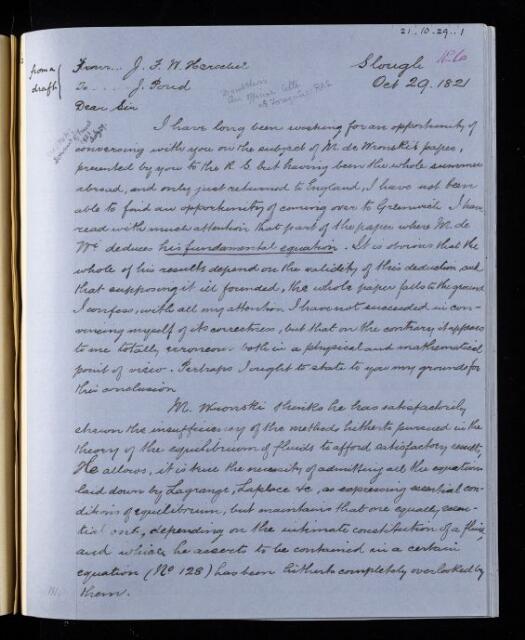 21.10.29..1
from a draft
From... J. F. W. Herschel
To.... J. Pond
Slough
Oct 29. 1821
Dear Sir
I have long been waiting for an opportunity of
conversing with you on the subject of M. de Wronski's paper,
presented by you to the R S. but having been the whole summer
abroad, and only just returned to England, I have not been
able to find an opportunity of coming over to Greenwich. I have
read with much attention that part of the paper where M. de
W. deduces his fundamental equation. It is obvious that the
whole of his results depend on the validity of this deduction, and
that supposing it ill founded, the whole paper falls to the ground
I confess, with all my attention I have not succeeded in con-
vincing myself of its correctness, but that on the contrary it appears
to me totally erroneous both in a physical and mathematical
point of view. Perhaps I ought to state to you my grounds for
this conclusion
M. Wronski thinks he has satisfactorily
shewn the insufficiency of the methods hitherto pursued in the
theory of the equilibrium of fluids to afford satisfactory results,
He allows, it is true the necessity of admitting all the equations
laid down by Lagrange, Laplace &c, as expressing essential con-
ditions of equilibrium, but maintains that one equally essen-
tial one, depending on the intimate constitution of a fluid,
and which he asserts to be contained in a certain
equation (No 128) has been hitherto completely overlooked by
them.